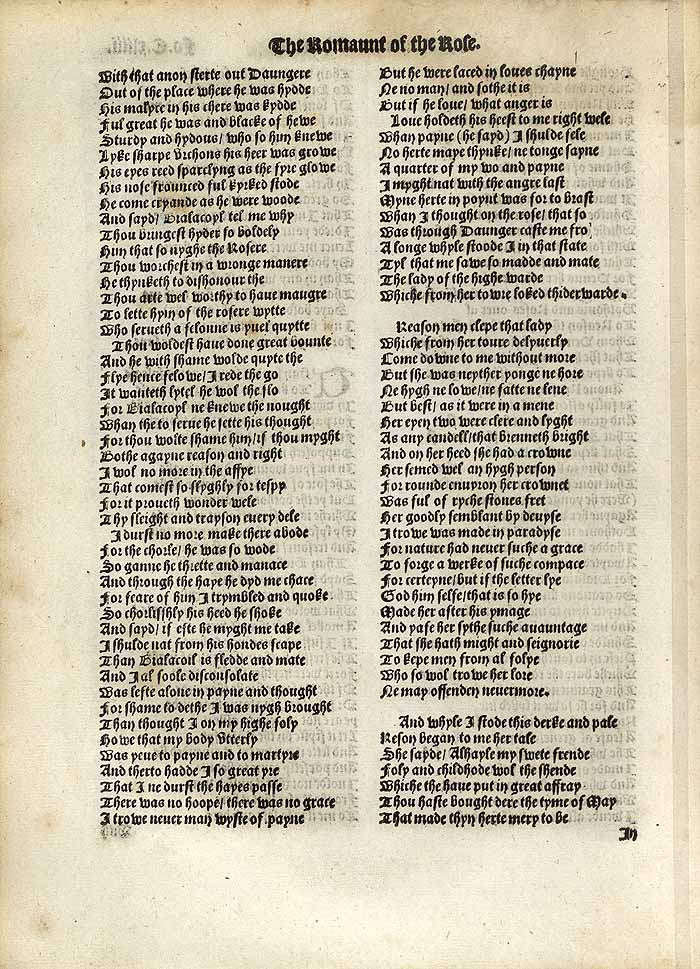 The Romaunt of the Rose.
With that anon sterte out Daungere
Out of the place where he was hydde
His malyce in his chere was kydde
Ful great he was and blacke of hewe
Sturdy and hydous/ who so him knewe
Lyke sharpe vrchons his heer was growe
His eyes reed sparclyng as the fyre glowe
His nose frounced ful kyrked stode
He come cryande as he were woode
And sayd/ Bialacoyl tel me why
Thou bringest hyder so boldely
Him that so nyghe the Rosere
Thou worchest in a wronge manere
He thynketh to dishonour the
Thou arte wel worthy to haue maugre
To lette hym of the rosere wytte
Who serueth a felonne is yuel quytte
Thou woldest haue done great bounte
And he with shame wolde quyte the
Flye hence felowe/ I rede the go
It wanteth lytel he wol the slo
For Bialacoyl ne knewe the nought
Whan the to serue he sette his thought
For thou wolte shame him/ if thou myght
Bothe agayne reason and right
I wol no more in the affye
That comest so slyghly for tespy
For it proueth wonder wele
Thy sleight and trayson euery dele
I durst no more make there abode
For the chorle/ he was so wode
So ganne he threte and manace
And through the haye he dyd me chace
For feare of him I trymbled and quoke
So chorlisshly his heed he shoke
And sayd/ if efte he myght me take
I shulde nat from his hondes scape
Than Bialacoil is fledde and mate
And I al soole disconsolate
Was lefte alone in payne and thought
For shame to dethe I was nygh brought
Than thought I on my highe foly
Howe that my body vtterly
Was yeue to payne and to martyre
And therto hadde I so great yre
That I ne durst the hayes passe
There was no hoope/ there was no grace
I trowe neuer man wyste of payne
But he were laced in loues chayne
Ne no man/ and sothe it is
But if he loue/ what anger is
Loue holdeth his heest to me right wele
Whan payne (he sayd) I shulde fele
No herte maye thynke/ ne tonge sayne
A quarter of my wo and payne
I myght nat with the angre last
Myne herte in poynt was for to brast
Whan I thought on the rose/ that so
Was through Daunger caste me fro
A longe whyle stoode I in that state
Tyl that me sawe so madde and mate
The lady of the highe warde
Whiche from her towre loked thiderwarde.
Reason men clepe that lady
Whiche from her toure delyuerly
Come downe to me without more
But she was neyther yonge ne hore
Ne hygh ne lowe/ ne fatte ne lene
But best/ as it were in a mene
Her eyen two were clere and lyght
As any candell/ that brenneth bright
And on her heed she had a crowne
Her semed wel an hygh person
For rounde enuyron her crownet
Was ful of ryche stones fret
Her goodly semblant by deuyse
I trowe was made in paradyse
For nature had neuer suche a grace
To forge a werke of suche compace
For certeyne/ but if the letter lye
God him selfe/ that is so hye
Made her after his ymage
And yafe her sythe suche auauntage
That she hath might and seignorie
To kepe men from al folye
Who so wol trowe her lore
Ne may offenden neuermore.
And whyle I stode this derke and pale
Reson began to me her tale
She sayde/ Alhayle my swete frende
Foly and childhode wol the shende
Whiche the haue put in great affray
Thou haste bought dere the tyme of May
That made thyn herte mery to be
In